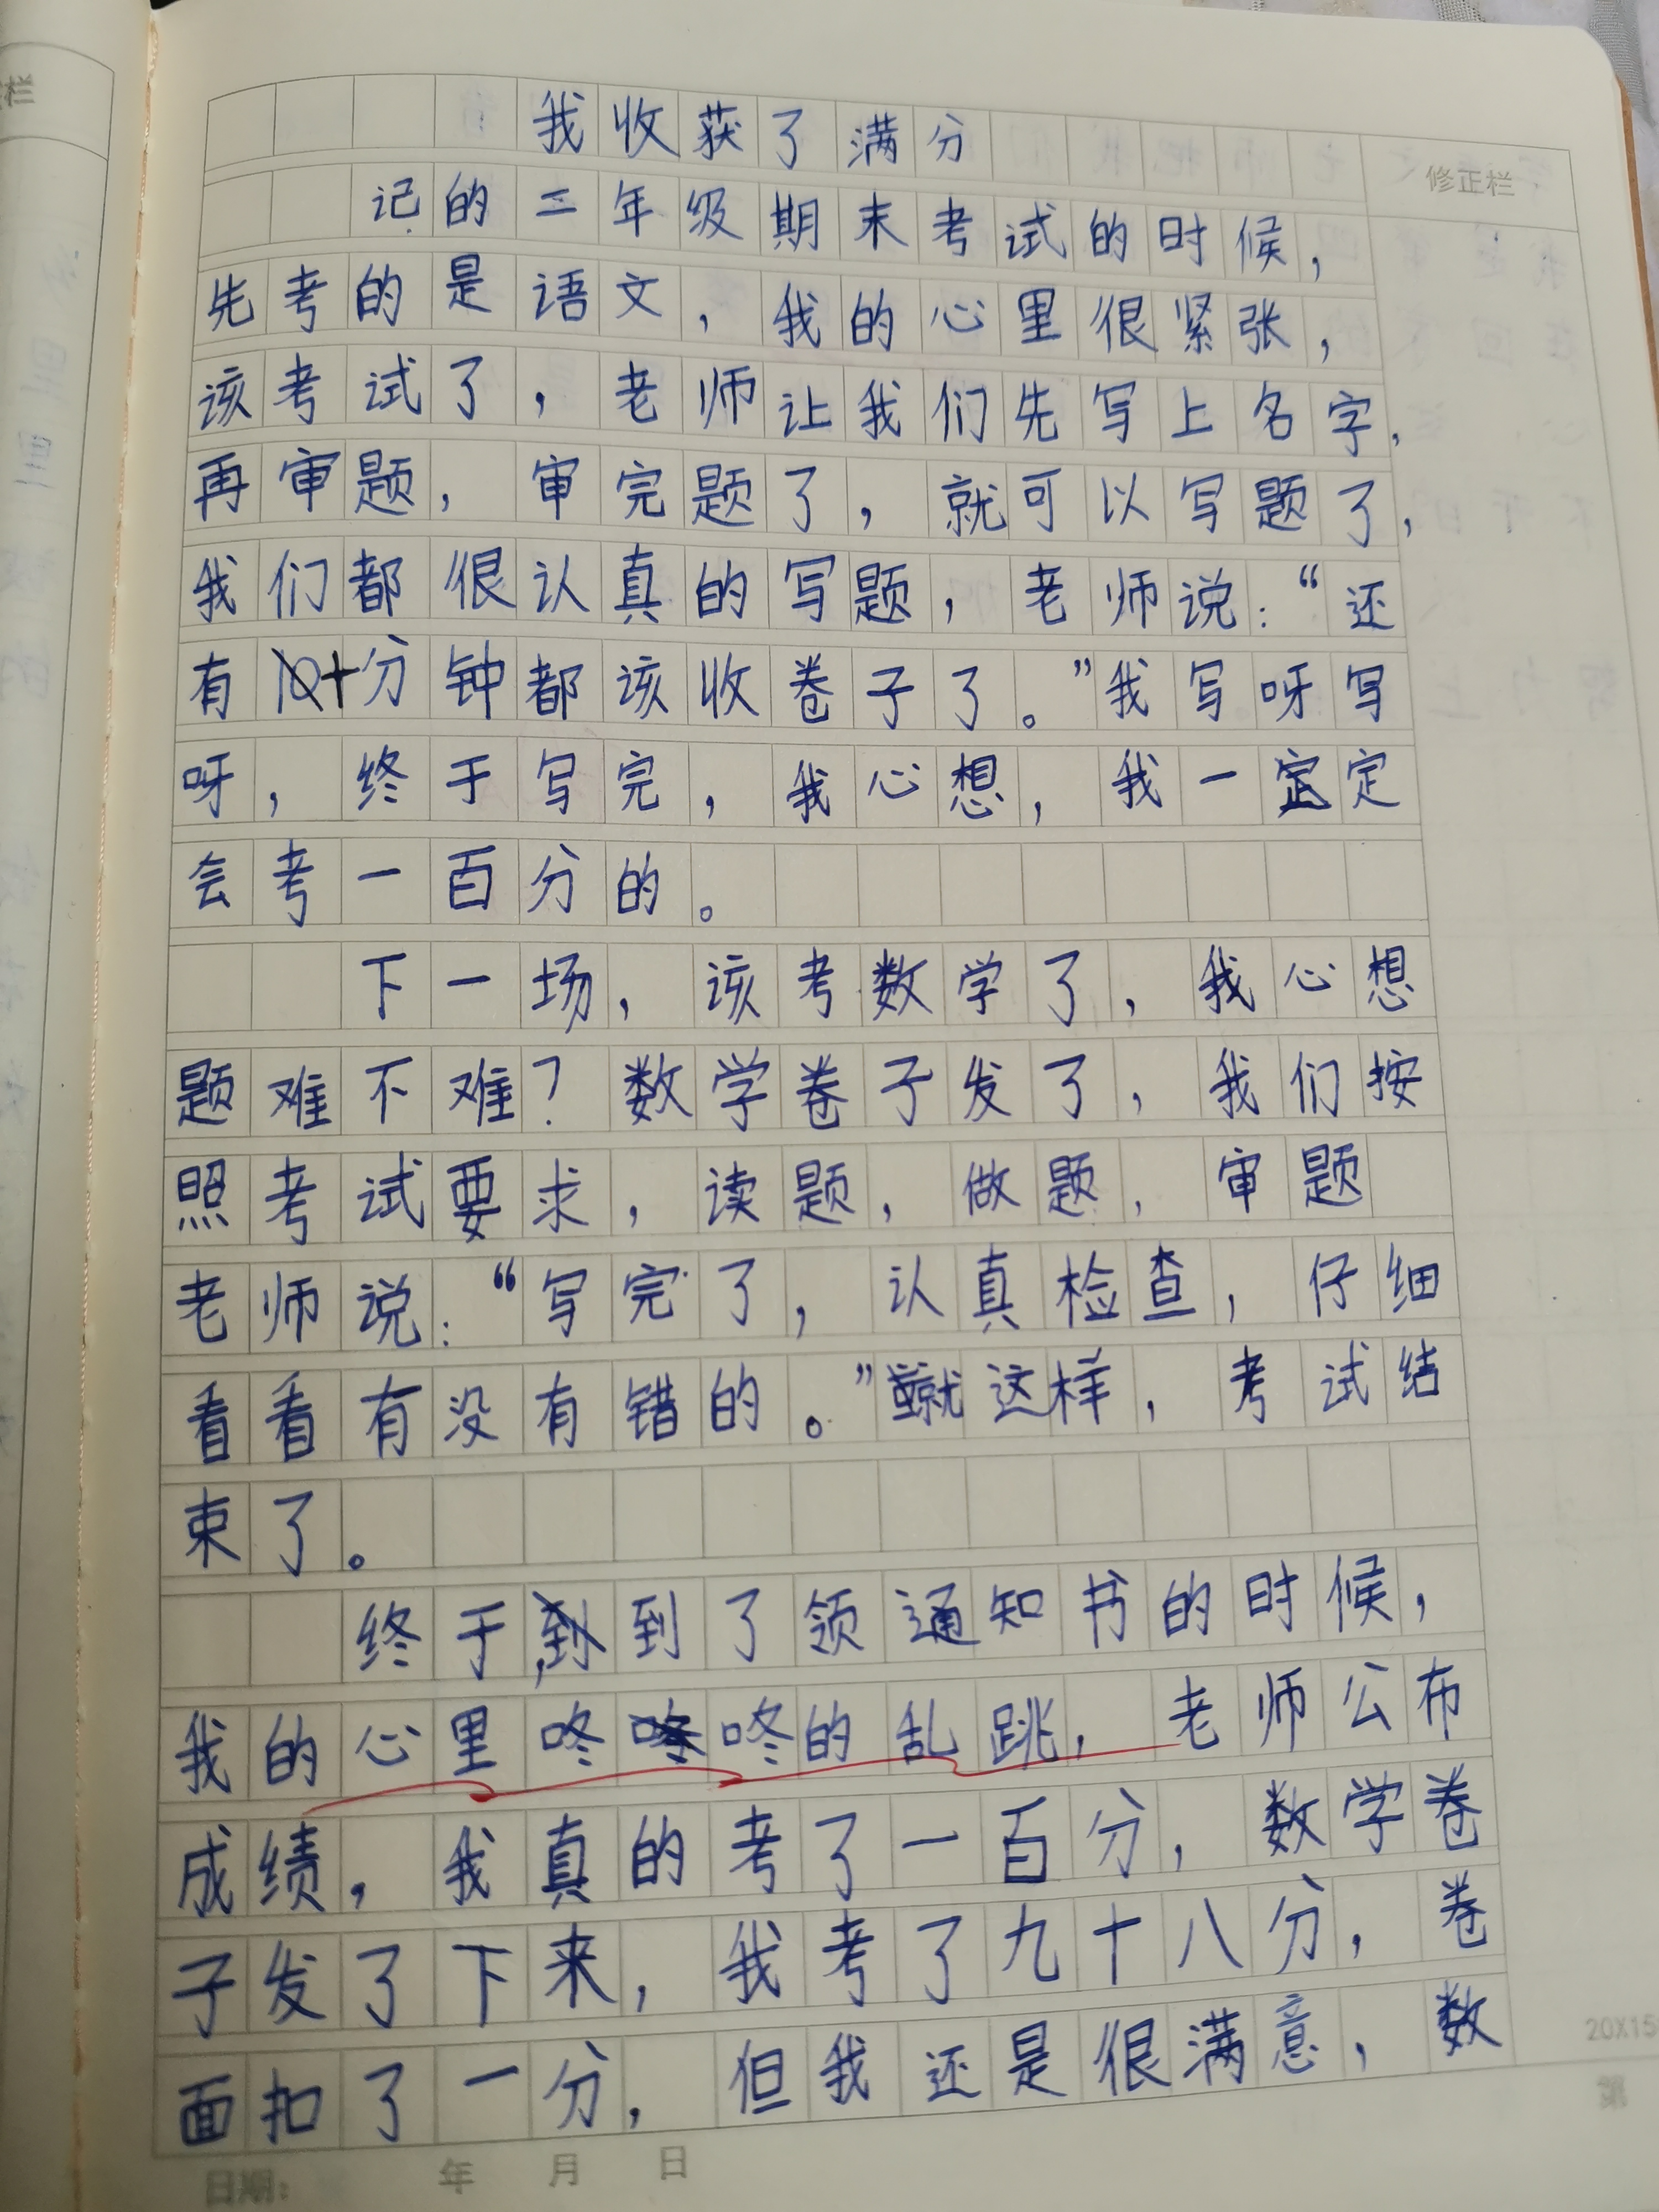 我收获了满分
修正栏
记的二年级期末考试的时候，
先考的是语文，我的心里很紧张，
该考试了，老师让我们先写上名字，
再审题，审完题了，就可以写题了，
我们都很认真的写题，老师说：“还
有十分钟都该收卷子了。”我写呀写
呀，终于写完，我心想，我一定
会考一百分的。
下一场，该考数学了，我心想
题难不难？数学卷子发了，我们按
照考试要求，读题，做题，审题
老师说：“写完了，认真检查，仔细
看看有没有错的。”就这样，考试结
束了。
终于到了领通知书的时候，
我的心里咚咚的乱跳，老师公布
成绩，我真的考了一百分，数学卷
子发了下来，我考了九十八分，卷
面扣了一分，但我还是很满意，数
20X15
日期： 年 月 日